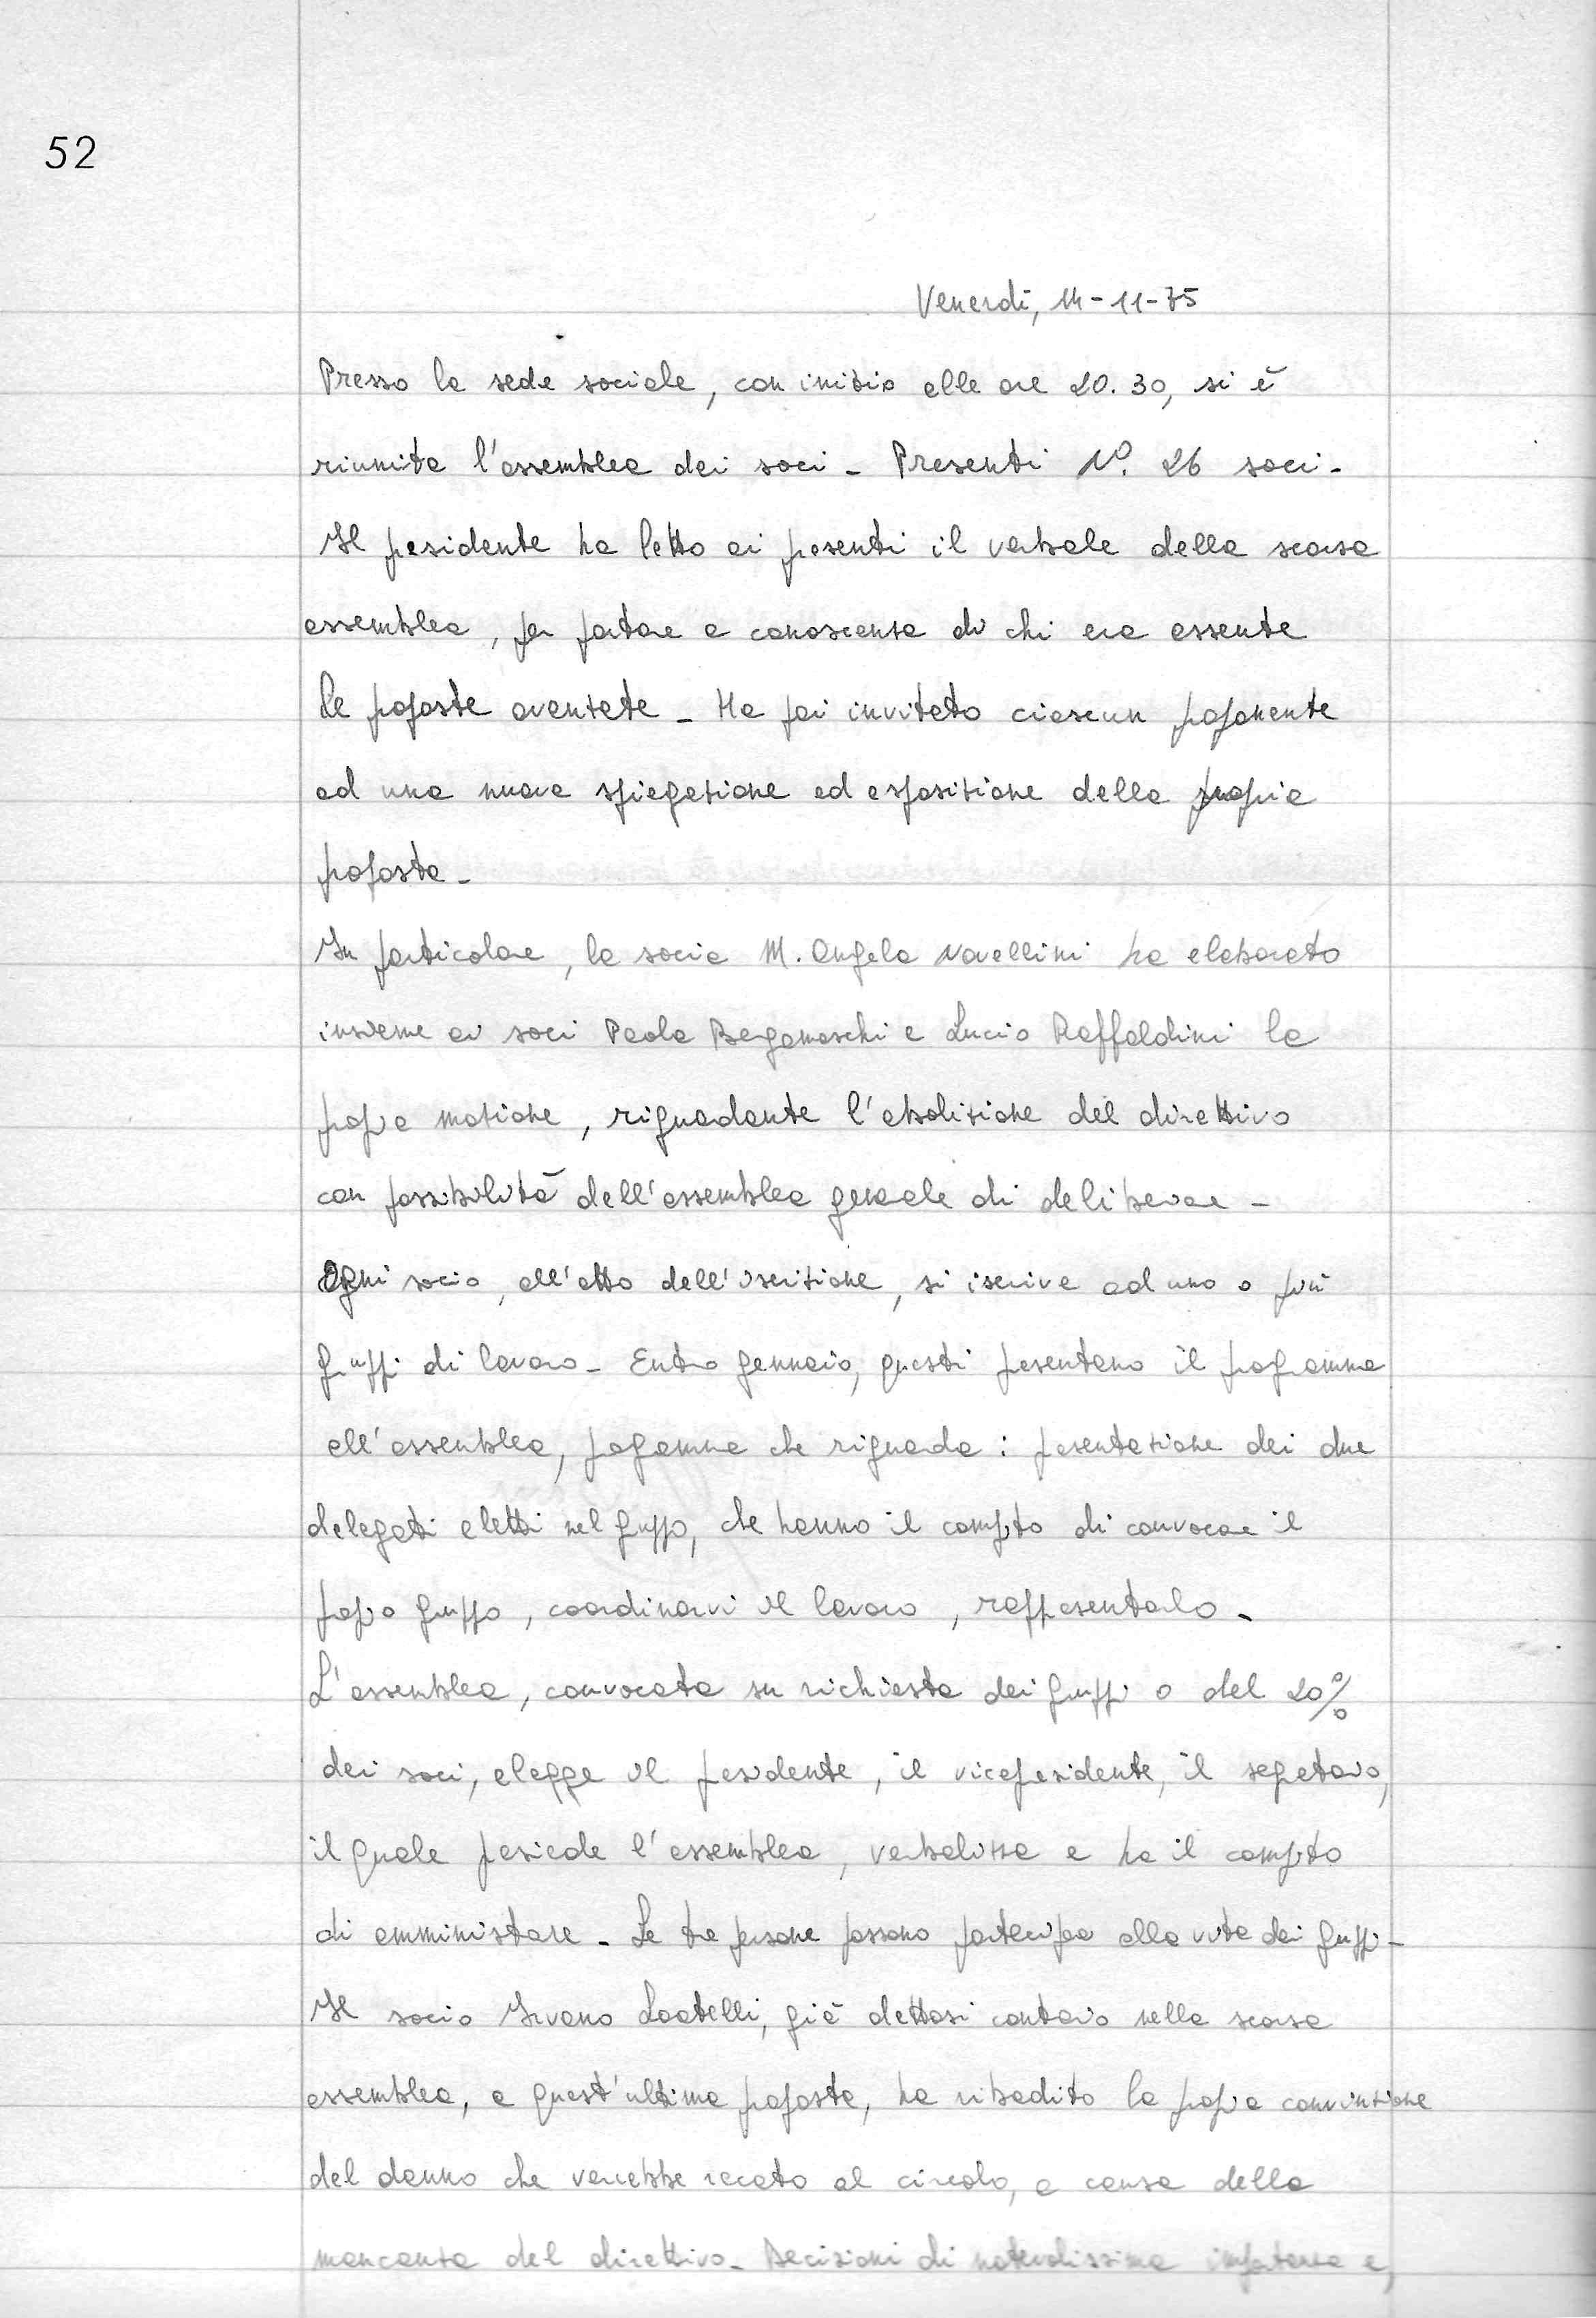 52
Venerdì, 14-11-75
Presso la sede sociale, con inizio alle ore 20.30, si è
riunita l'assemblea dei soci - Presenti N°. 26 soci -
Il presidente ha letto ai presenti il verbale della scorsa
assemblea, per portare a conoscenza di chi era assente
le proposte avanzate - Ha poi invitato ciascun proponente
ad una nuova spiegazione ed esposizione della propria
proposta -
In particolare, la socia M. Angela Novellini ha elaborato
insieme ai soci Paola Bergamaschi e Lucio Raffaldini la
propria mozione, riguardante l'abolizione del direttivo
con possibilità dell'assemblea generale di deliberare -
Ogni socio, all'atto dell'iscrizione, si iscrive ad uno o più
gruppi di lavoro - Entro gennaio, questi presentano il programma
all'assemblea, programma che riguarda : presentazione dei due
delegati eletti nel gruppo, che hanno il compito di convocare il
proprio gruppo, coordinarvi il lavoro, rappresentarlo -
L'assemblea, convocata su richiesta dei gruppi o del 20%
dei soci, elegge il presidente, il vicepresidente, il segretario,
il quale presiede l'assemblea, verbalizza e ha il compito
di amministrare - Le tre persone possono partecipare alla vita dei gruppi -
Il socio Ivano Locatelli, già dettosi contrario nella scorsa
assemblea, a quest'ultima proposta, ha ribadito la propria convinzione
del danno che verrebbe recato al circolo, a causa della
mancanza del direttivo - Decisioni di notevolissima importanza e,